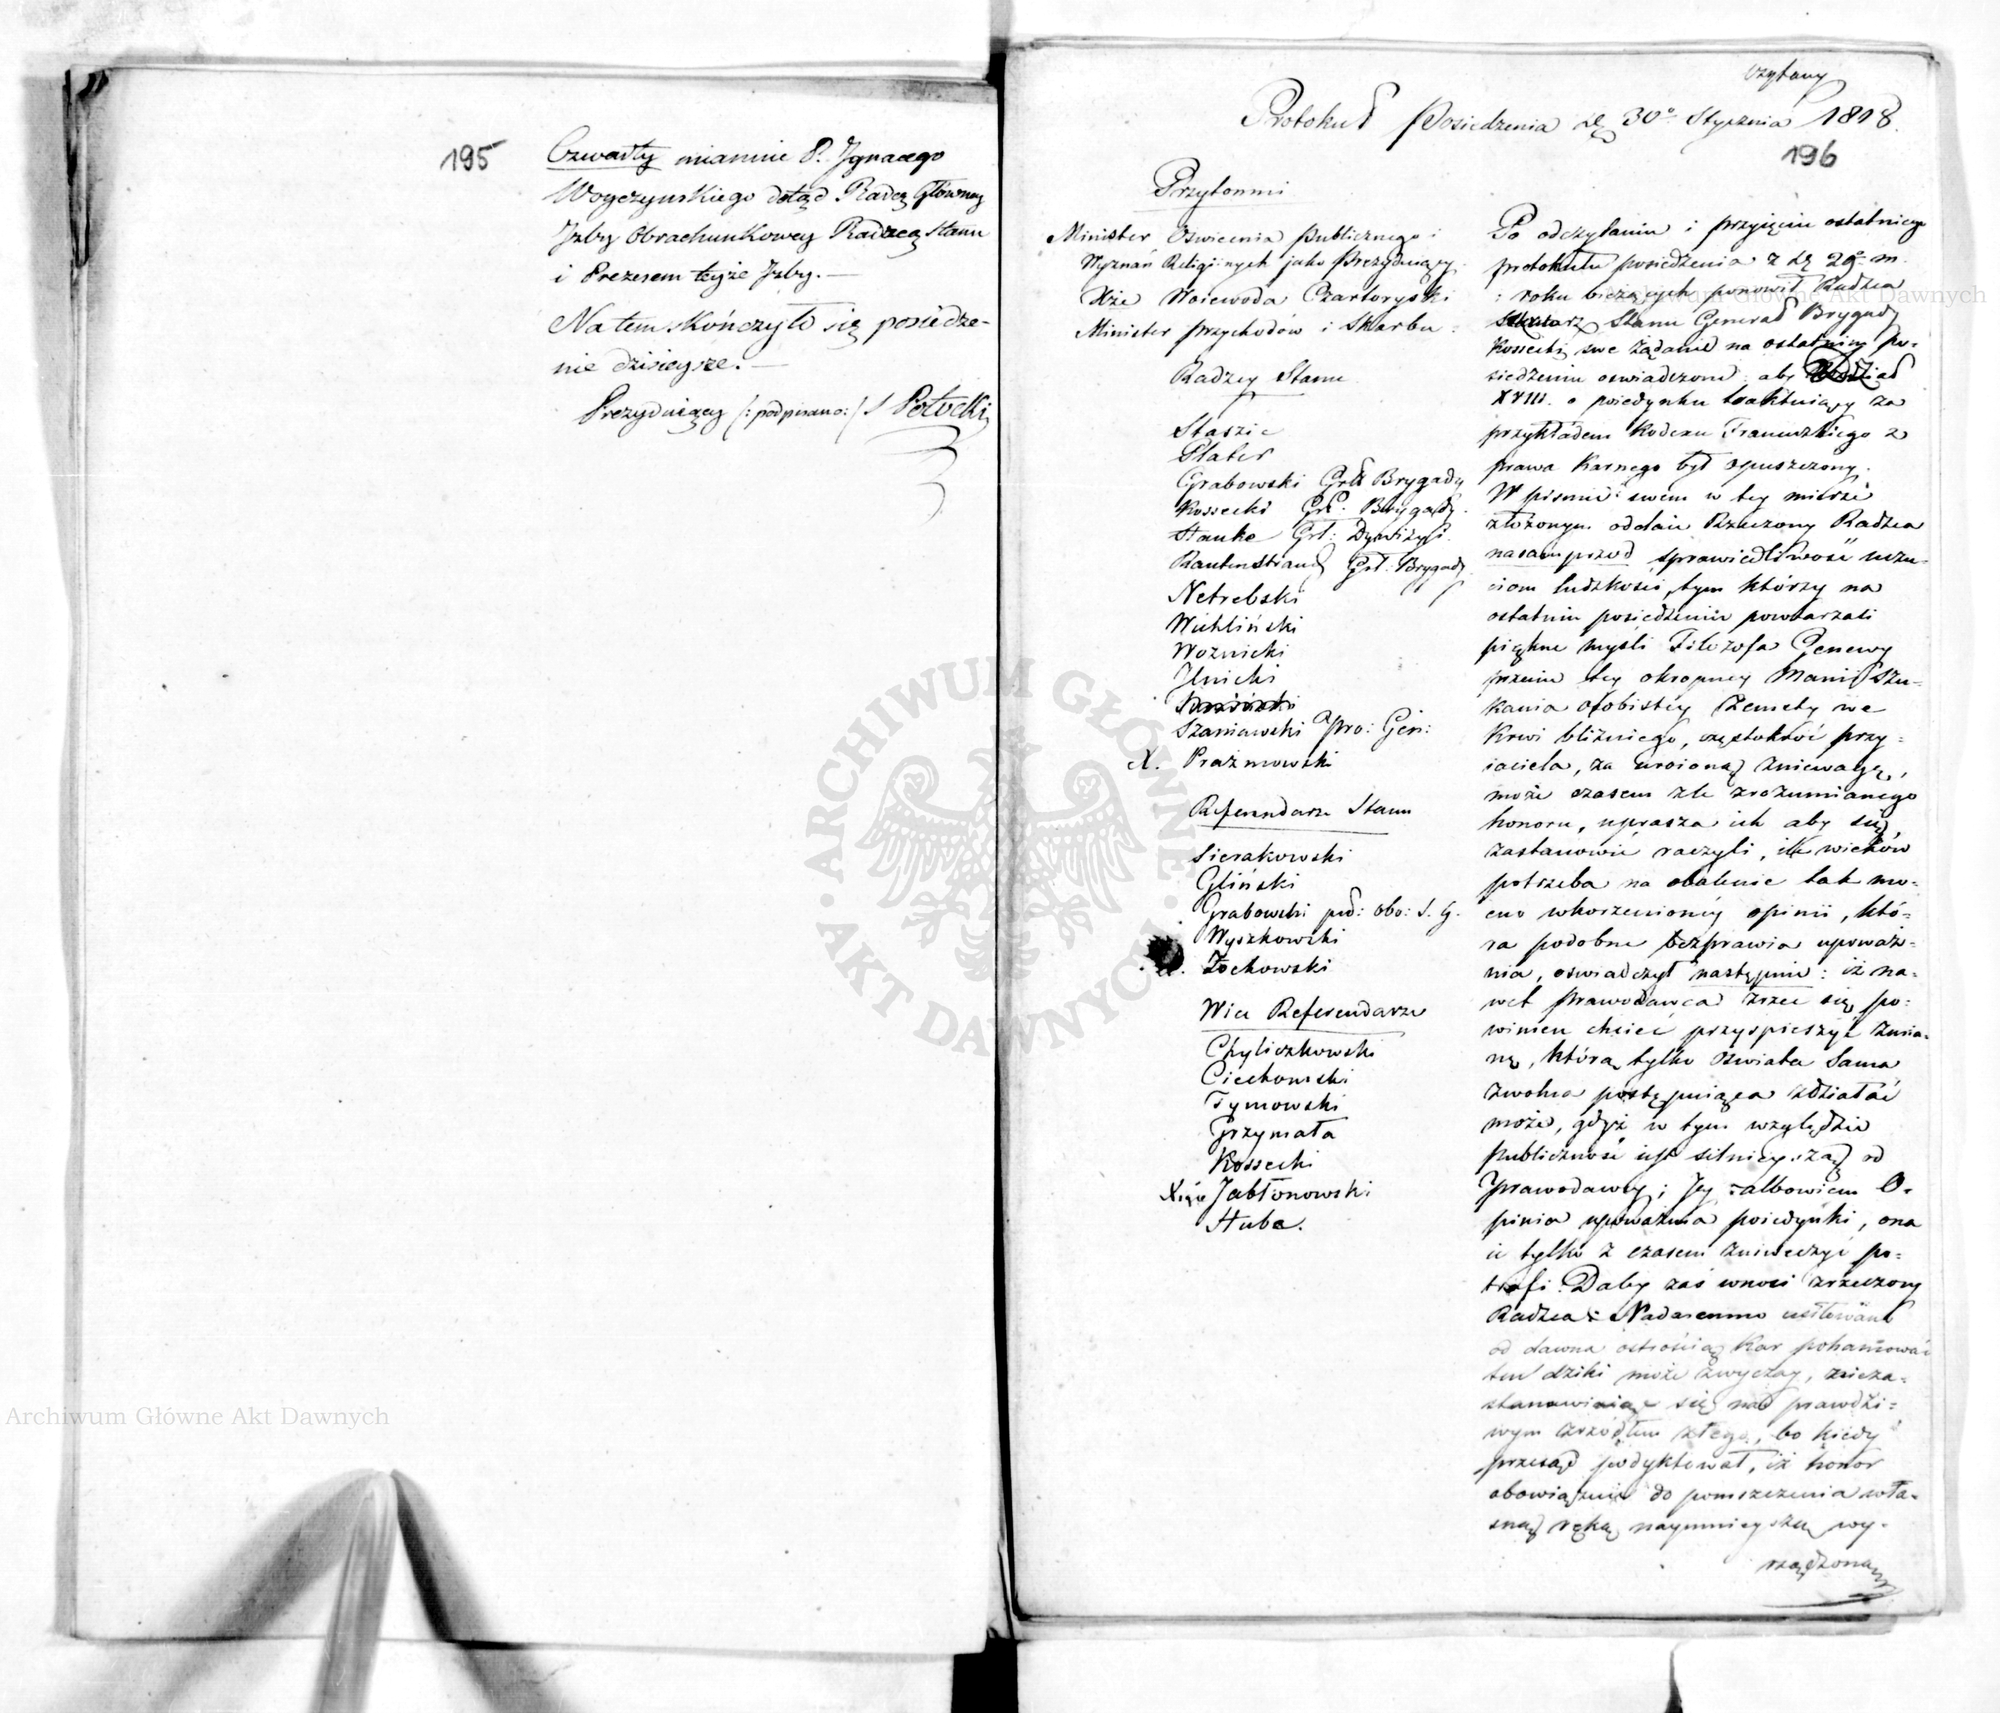 195
Czwarty mianuie P. Jgnacego
Woyczynskiego dotąd Radcę Główney
Jzby Obrachunkowey Radzcą Stanu
i Prezesem teyże Jzby. —
Na tem skończyło się posiedze-
nie dzisieysze. —
Prezyduiący /: podpisano :/ S Potocki
czytany
Protokuł Posiedzenia dę 30o Stycznia 1818.
196
Przytomni
Minister Oswiecenia Publicznego i
Wyznań Religiinych jako Prezyduiący.
Xże Woiewoda Czartoryski
Minister Przychodów i Skarbu
Radzcy Stanu
Staszic
Plater
Grabowski Grł Brygady
Kossecki Grł. Brygady.
Hauke Grł: Dywizyi.
Rautenstrauch Grł: Brygady
Netrebski
Wichliński
Woznicki
Jlnicki
Szaniawski Pro: Gen:
X. Prażmowski
Referendarze Stanu
Sierakowski
Gliński
Grabowski peł: obo: S. G.
Wyszkowski
Żochowski
Wice Referendarze
Chyliczkowski
Ciechomski
Tymowski
Grzymała
Kossecki
Xiąże Jabłonowski
Hube.
Po odczytaniu i przyięciu ostatniego
protokułu posiedzenia z dę 29o m.
i roku bieżących ponowił Radzca
Stanu Generał Brygady
Kossecki swe żądanie na ostatnim po-
siedzeniu oswiadczone: aby Oddział
XVIII. o poiedynku traktuiący za
przykładem Kodexu Francuzkiego z
prawa Karnego był opuszczony.
W pismie swem w tey mierze
złożonym oddaie Rzeczony Radzca
nasamprzod sprawiedliwość uczu-
ciom ludzkości, tym którzy na
ostatnim posiedzeniu powtarzali
piękne mysli Filozofa Genewy
przeciw tey okropney Manii szu-
kania osobistey Zemsty we
Krwi bliźniego, częstokroć przy-
iaciela, za uroioną zniewagę,
może czasem zle zrozumianego
honoru, uprasza ich aby się
zastanowić raczyli, ile wieków
potrzeba na obalenie tak mo-
cno wkorzenioney opinii, któ-
ra podobne bezprawia upoważ-
nia, oswiadczył następnie: iż na-
wet Prawodawca zrzec się po-
winien chcieć przyspieszyć zmia-
nę, którą tylko Oswiata sama
zwolna postępuiąca zdziałać
może, gdyż w tym względzie
Publiczność iest silnieyszą od
Prawodawcy; Jey albowiem O-
pinia upoważnia poiedynki, ona
ie tylko z czasem zniweczyć po-
trafi. Daley zaś wnosi zrzeczony
Radzca: Nadaremno usiłowano
od dawna ostrością Kar pohamować
ten dziki może zwyczay, nieza-
stanawiaiąc się nad prawdzi-
wym zrzodłem złego, bo kiedy
przesąd podyktował, iż honor
obowiązuie do pomszczenia wła-
sną ręką naymnieyszą wy-
rządzoną
Archiwum Główne Akt Dawnych
Archiwum Główne Akt Dawnych
ARCHIWUM GŁÓWNE
AKT DAWNYCH